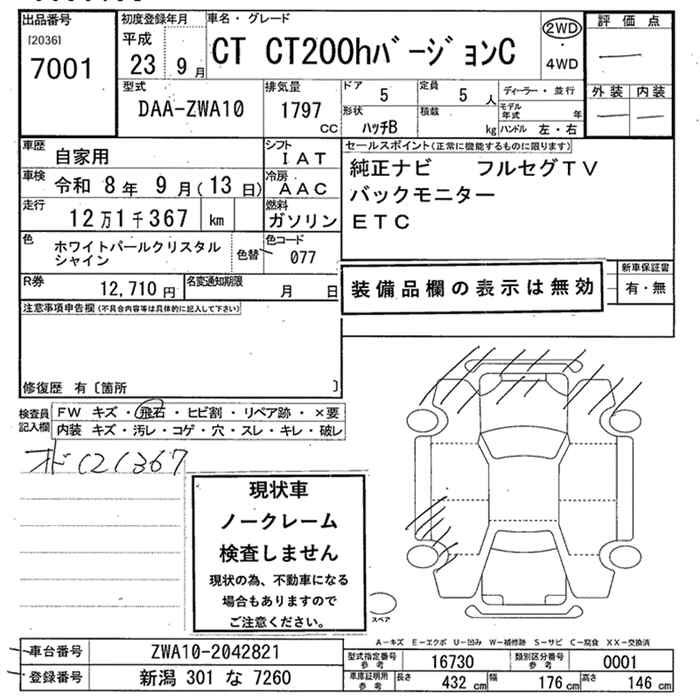 出品番号 初度登録年月 車名・グレード 2WD 評価点
[2036] 平成
7001 23 9月 CT CT200hバージョンC ・ 4WD
型式 排気量 ドア 定員 ディーラー・並行 外装 内装
DAA-ZWA10 1797 cc 5 5 人 モデル年式 年
形状 積載
ハッチB kg ハンドル 左・右
車歴 自家用 シフト IAT セールスポイント(正常に機能するものに限ります)
車検 令和 8年 9月(13日) 冷房 AAC 純正ナビ フルセグTV
走行 12万1千367 km 燃料 ガソリン バックモニター
ETC
色 ホワイトパールクリスタルシャイン 色替 色コード 077
R券 12,710円 名変通知期限 月 日 装備品欄の表示は無効 新車保証書
有・無
注意事項申告欄(不具合内容等は具体的に記入して下さい)
修復歴 有〔箇所 〕
検査員記入欄 FW キズ・飛石・ヒビ割・リペア跡・×要
内装 キズ・汚レ・コゲ・穴・スレ・キレ・破レ
オド121367
現状車
ノークレーム
検査しません
現状の為、不動車になる
場合もありますので
ご注意ください。
スペア
A-キズ E-エクボ U-凹み W-補修跡 S-サビ C-腐食 XX-交換済
車台番号 ZWA10-2042821 型式指定番号参考 16730 類別区分番号参考 0001
登録番号 新潟 301 な 7260 車庫証明用参考 長さ 432 cm 幅 176 cm 高さ 146 cm